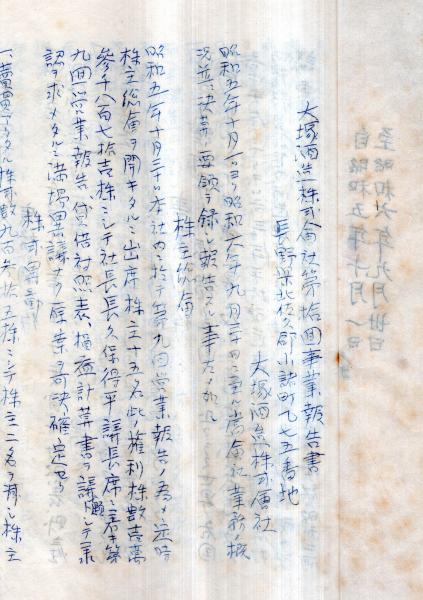 大塚酒造株式会社第拾回事業報告書
長野県北佐久郡小諸町乙七五番地
大塚酒造株式会社
昭和五年十月一日ヨリ昭和六年九月三十日ニ至ル当会社業務ノ概
況並ニ決算ノ要領ヲ録シ報告スル事左ノ如シ
株主総会
昭和五年十月三十日本社内ニ於テ第九回営業報告ノ為メ定時
株主総会ヲ開キタルニ出席株主十五名此ノ権利株数壱萬
参千八百七拾壱株ニシテ社長長久保得平議長席ニ着キ第
九回営業報告、貸借対照表、損益計算書ヲ議題トシテ承
認ヲ求メタルニ満場異議ナク原案
可決確定セリ
株式異動
一、売買アリタル株式数九百参拾五株ニシテ株主二名ヲ得シ株主
至昭和六年九月卅日
自昭和五年十月一日